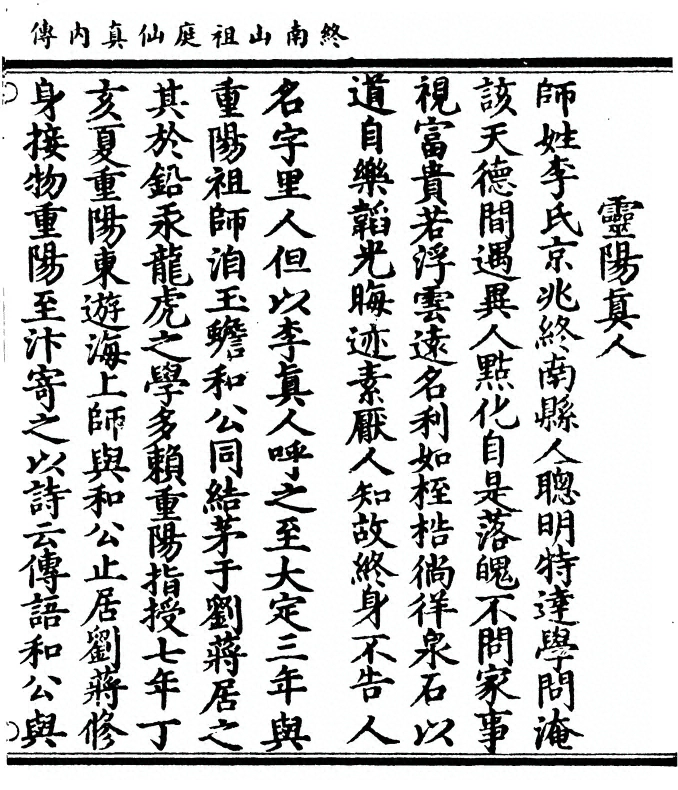 終南山祖庭仙真內傳
靈陽真人
師姓李氏京兆終南縣人聰明特達學問淹
該天德間遇異人點化自是落魄不問家事
視富貴若浮雲遠名利如桎梏徜徉泉石以
道自樂韜光晦迹素厭人知故終身不告人
名字里人但以李真人呼之至大定三年與
重陽祖師洎玉蟾和公同結茅于劉蔣居之
其於鉛汞龍虎之學多賴重陽指授七年丁
亥夏重陽東遊海上師與和公止居劉蔣修
身接物重陽至汴寄之以詩云傳語和公與